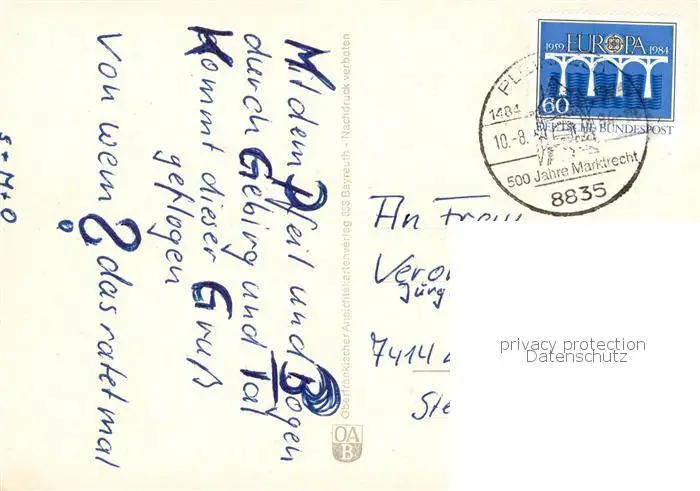 Mit dem Pfeil und Bogen
durch Gebirg und Tal
Kommt dieser Gruß
geflogen
Von wem? das ratet mal
S + M + O
Oberfränkischer Ansichtskartenverlag 858 Bayreuth - Nachdruck verboten
OA
B
1959 EUROPA 1984
60
DEUTSCHE BUNDESPOST
1484
10.-8.
500 Jahre Marktrecht
8835
An Frau
Jürg
7414
privacy protection
Datenschutz